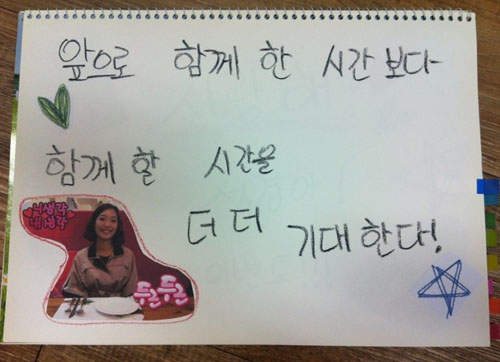 앞으로 함께 한 시간보다
함께 할 시간을
더 더 기대한다!
니생각
내생각
두근두근